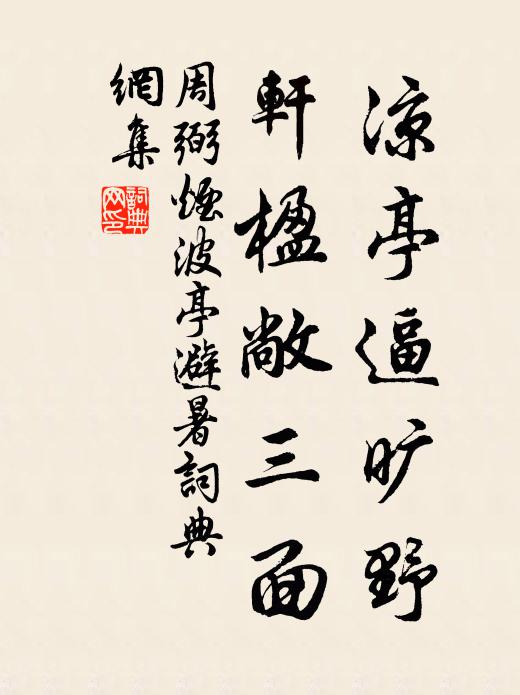 凉亭逼旷野
軒楹敞三面
周弼煙波亭避暑詞典
網集
詞典
网印